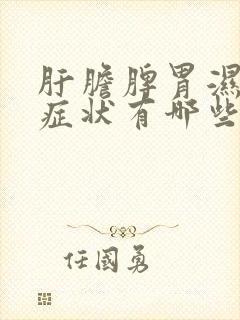 肝膽脾胃濕
症狀有哪些
任國勇